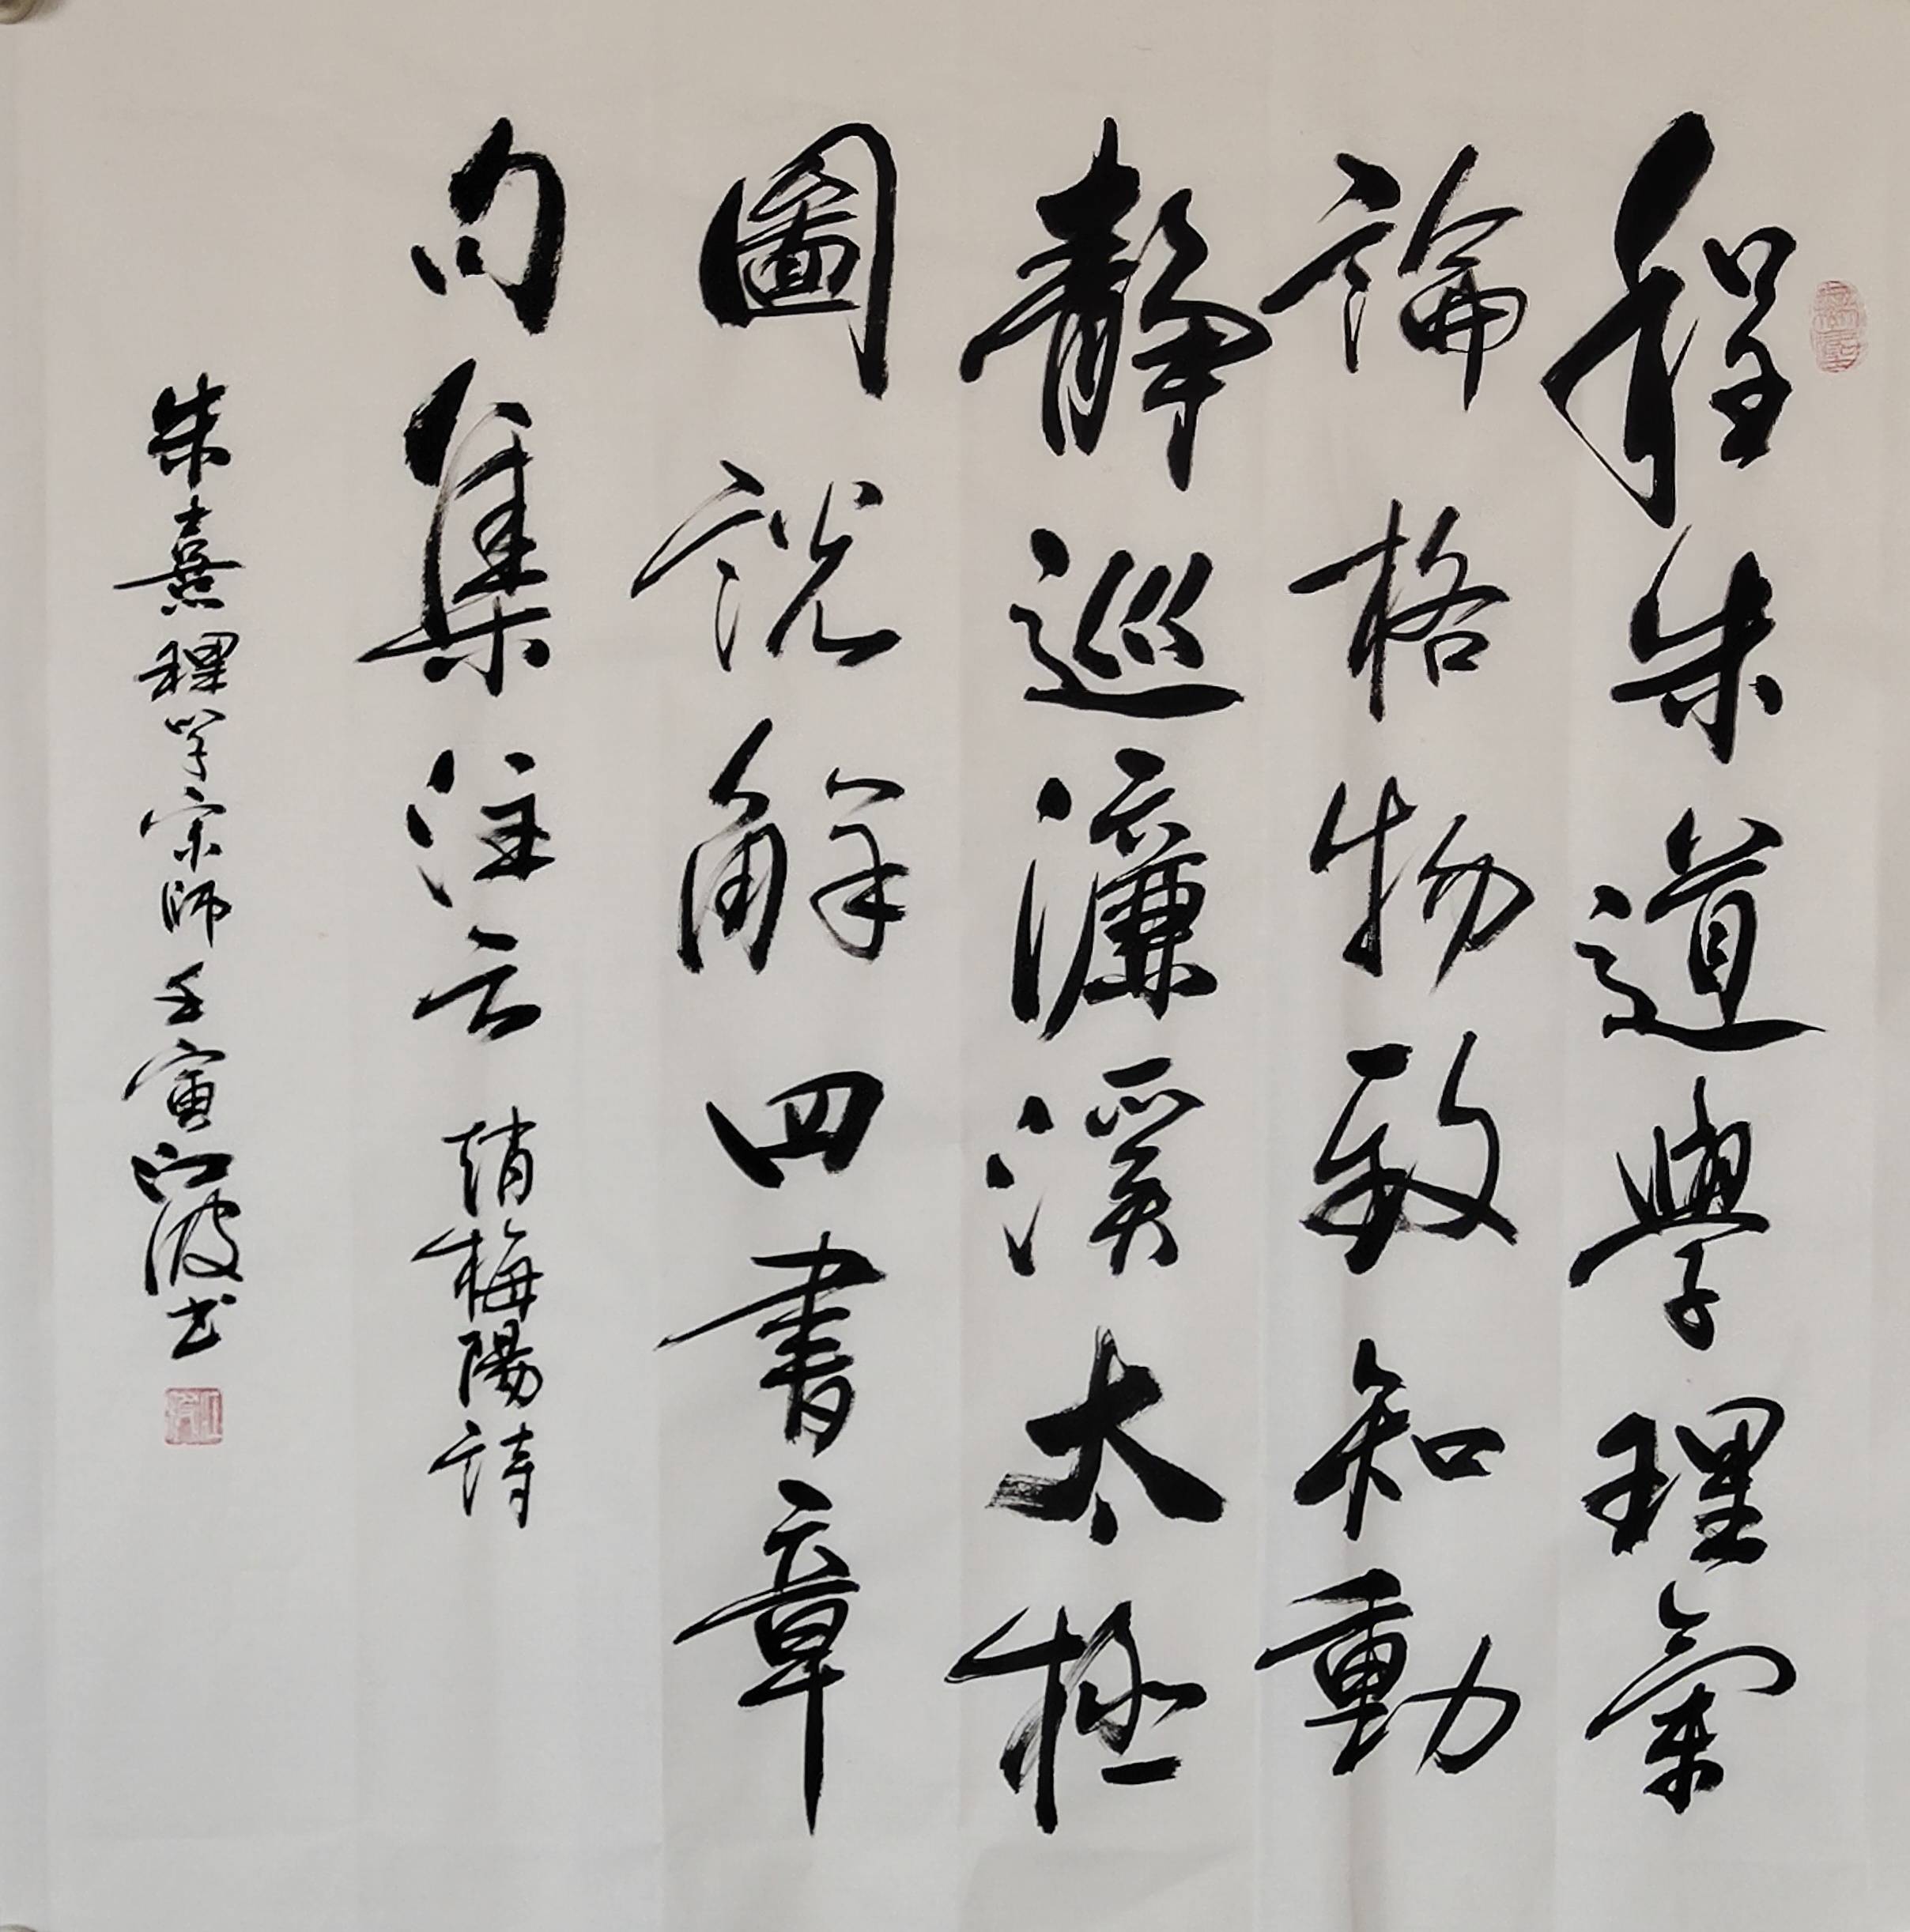 程朱道學理氣
論格物致知動
靜巡濂溪太極
圖說解四書章
句集注云 趙梅陽詩
朱熹理学宗師壬寅江波书